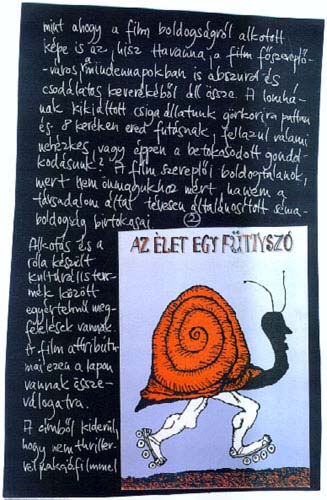 mint ahogy a film boldogságról alkotott
képe is az, hisz Havanna, a film főszereplő-
városa, mindennapokban is abszurd és
csodálatos keverékéből áll össze. A lomhá-
nak kikiáltott csiga állatunk görkorira pattan
és 8 keréken ered futásnak, fellazul valami
nehézkes, vagy éppen a betokosodott gondol-
kodásunk? A film szereplői boldogtalanok,
mert nem önmagukhoz mért, hanem a
társadalom által tévesen általánosított séma-
boldogság birtokosai. 2
Alkotás és a
róla készült
kulturális ter-
mék között
egyértelmű meg-
felelések vannak.
A film attribútu-
mai ezen a lapon
vannak össze-
válogatva.
A címből kiderül,
hogy nem thriller-
rel
AZ ÉLET EGY FÜTTYSZÓ